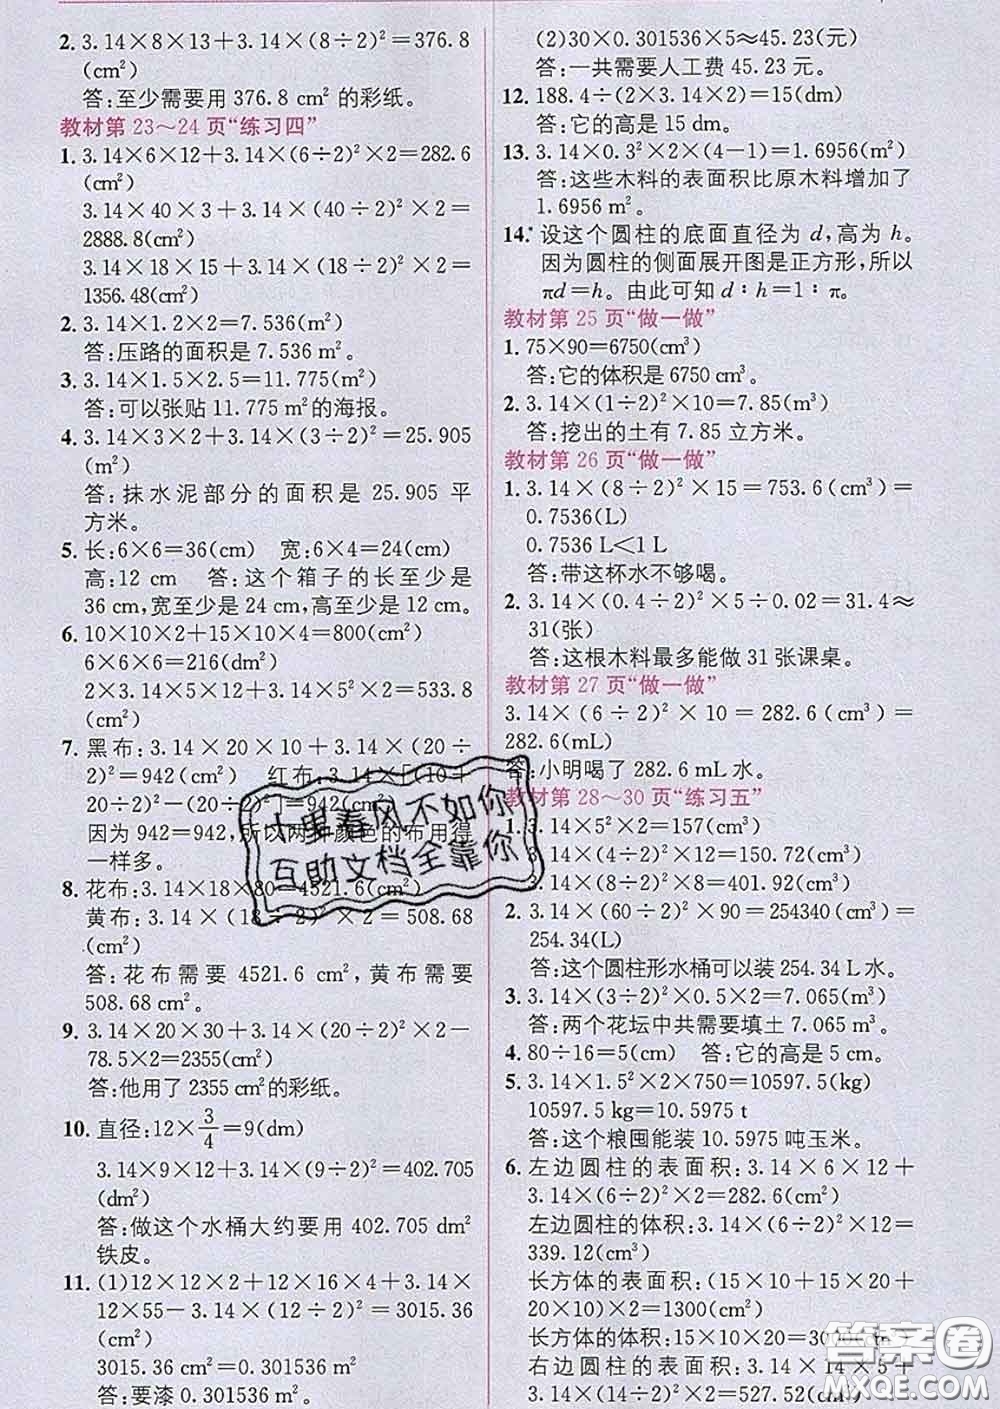 2. 3.14×8×13+3.14×(8÷2)²=376.8
(cm²)
答:至少需要用 376.8 cm² 的彩纸。
教材第 23～24 页“练习四”
1. 3.14×6×12+3.14×(6÷2)²×2=282.6
(cm²)
3.14×40×3+3.14×(40÷2)²×2=
2888.8(cm²)
3.14×18×15+3.14×(18÷2)²×2=
1356.48(cm²)
2. 3.14×1.2×2=7.536(m²)
答:压路的面积是 7.536 m²。
3. 3.14×1.5×2.5=11.775(m²)
答:可以张贴 11.775 m²的海报。
4. 3.14×3×2+3.14×(3÷2)²=25.905
(m²)
答:抹水泥部分的面积是 25.905 平
方米。
5. 长:6×6=36(cm) 宽:6×4=24(cm)
高:12 cm 答:这个箱子的长至少是
36 cm,宽至少是 24 cm,高至少是 12 cm。
6. 10×10×2+15×10×4=800(cm²)
6×6×6=216(dm²)
2×3.14×5×12+3.14×5²×2=533.8
(cm²)
7. 黑布:3.14×20×10+3.14×(20÷
2)²=942(cm²) 红布:3.14×[(10+
20÷2)²-(20÷2)²]=942(cm²)
因为 942=942,所以两种颜色的布用得
一样多。
8. 花布:3.14×18×80=4521.6(cm²)
黄布:3.14×(18÷2)²×2=508.68
(cm²)
答:花布需要 4521.6 cm²,黄布需要
508.68 cm²。
9. 3.14×20×30+3.14×(20÷2)²×2-
78.5×2=2355(cm²)
答:他用了 2355 cm²的彩纸。
10. 直径:12×3/4=9(dm)
3.14×9×12+3.14×(9÷2)²=402.705
(dm²)
答:做这个水桶大约要用 402.705 dm²
铁皮。
11. (1)12×12×2+12×16×4+3.14×
12×55-3.14×(12÷2)²=3015.36
(cm²)
3015.36 cm²=0.301536 m²
答:要漆 0.301536 m²。
(2)30×0.301536×5≈45.23(元)
答:一共需要人工费 45.23 元。
12. 188.4÷(2×3.14×2)=15(dm)
答:它的高是 15 dm。
13. 3.14×0.3²×2×(4-1)=1.6956(m²)
答:这些木料的表面积比原木料增加了
1.6956 m²。
14.* 设这个圆柱的底面直径为 d,高为 h。
因为圆柱的侧面展开图是正方形,所以
πd=h。由此可知 d∶h=1∶π。
教材第 25 页“做一做”
1. 75×90=6750(cm³)
答:它的体积是 6750 cm³。
2. 3.14×(1÷2)²×10=7.85(m³)
答:挖出的土有 7.85 立方米。
教材第 26 页“做一做”
1. 3.14×(8÷2)²×15=753.6(cm³)=
0.7536(L)
0.7536 L<1 L
答:带这杯水不够喝。
2. 3.14×(0.4÷2)²×5÷0.02=31.4≈
31(张)
答:这根木料最多能做 31 张课桌。
教材第 27 页“做一做”
3.14×(6÷2)²×10=282.6(cm³)=
282.6(mL)
答:小明喝了 282.6 mL 水。
教材第 28～30 页“练习五”
1. 3.14×5²×2=157(cm³)
3.14×(4÷2)²×12=150.72(cm³)
3.14×(8÷2)²×8=401.92(cm³)
2. 3.14×(60÷2)²×90=254340(cm³)=
254.34(L)
答:这个圆柱形水桶可以装 254.34 L水。
3. 3.14×(3÷2)²×0.5×2=7.065(m³)
答:两个花坛中共需要填土 7.065 m³。
4. 80÷16=5(cm) 答:它的高是 5 cm。
5. 3.14×1.5²×2×750=10597.5(kg)
10597.5 kg=10.5975 t
答:这个粮囤能装 10.5975 吨玉米。
6. 左边圆柱的表面积:3.14×6×12+
3.14×(6÷2)²×2=282.6(cm²)
左边圆柱的体积:3.14×(6÷2)²×12=
339.12(cm³)
长方体的表面积:(15×10+15×20+
20×10)×2=1300(cm²)
长方体的体积:15×10×20=3000(cm³)
右边圆柱的表面积:3.14×14×5+
3.14×(14÷2)²×2=527.52(cm²)
十里春风不如你
互助文档全靠你
答案圈
MXQE.COM